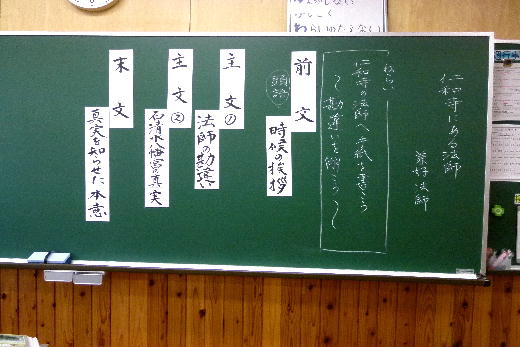 仁和寺にある法師
兼好法師
ねらい
仁和寺の法師へ手紙を書こう
〜勘違いを解こう〜
前文
頭語
時候の挨拶
主文①
法師の勘違い
主文②
石清水八幡宮の真実
末文
真実を知らせた本意